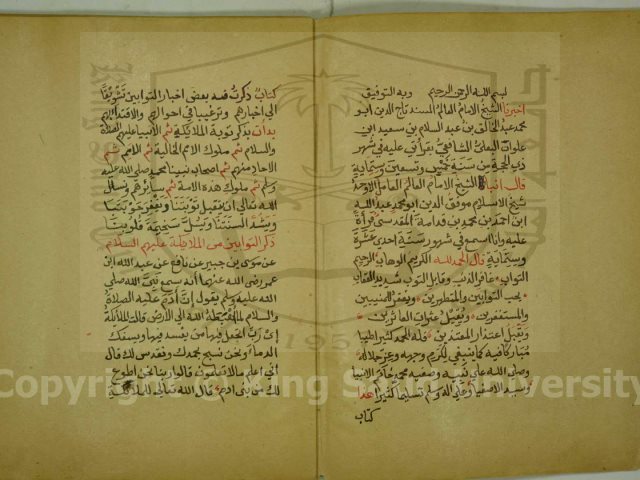 بسم الله الرحمن الرحيم وبه التوفيق
اخبرنا الشيخ الامام العالم المسند تاج الدين ابو
محمد عبد الخالق بن عبد السلام بن سعيد ابن
علوان البعلي الشافعي بقرأتي عليه في شهر
ذي الحجة من سنة خمس وتسعين وستماية
قال انبا الشيخ الامام العالم العامل الاوحد
شيخ الاسلام موفق الدين ابو محمد عبد الله
ابن احمد بن محمد بن قدامة المقدسي قرأة
عليه وانا اسمع في شهور سنة احدى عشرة
وستماية قال الحمد لله الكريم الوهاب الرحيم
التواب غافر الذنب وقابل التوب شديد العقاب
يحب التوابين والمتطهرين ويغفر للمنيبين
والمستغفرين ويقيل عثرات العاثرين
ويقبل اعتذار المعتذرين فله الحمد كثيرا طيبا
مباركا فيه كما ينبغي لكرم وجهه وعز جلاله
وصلى الله على نبيه وصفيه محمد خاتم الانبيا
وسيد الاصفيا وعلى اله وسلم تسليما كثيرا هذا
كتاب
كتاب ذكرت فيه بعض اخبار التوابين تشويقا
الى اخبارهم وترغيبا في احوالهم والاقتدا بهم
بدات بذكر توبة الملائكة ثم الانبيا عليهم الصلاة
والسلام ثم ملوك الامم الخالية ثم الامم ثم
الاحاد منهم ثم اصحاب نبينا محمد صلى الله عليه
وسلم ثم ملوك هذه الامة ثم سائرهم ونسأل
الله تعالى ان يتقبل توبتنا ويغفر حوبتنا
ويسدد السنتنا ويسل سخيمة قلوبنا
ذكر التوابين من الملائكة عليهم السلام
عن موسى بن جبير عن نافع عن عبد الله ابن
عمر رضي الله عنهما انه سمع نبي الله صلى
الله عليه وسلم يقول ان ادم عليه الصلاة
والسلام لما اهبطه الله الى الارض قالت الملائكة
اي رب اتجعل فيها من يفسد فيها ويسفك
الدما ونحن نسبح بحمدك ونقدس لك قال
اني اعلم ما لا تعلمون قالوا ربنا نحن اطوع
لك من بني ادم قال الله تعالى للملائكة
Copyright © King Saud University
1957